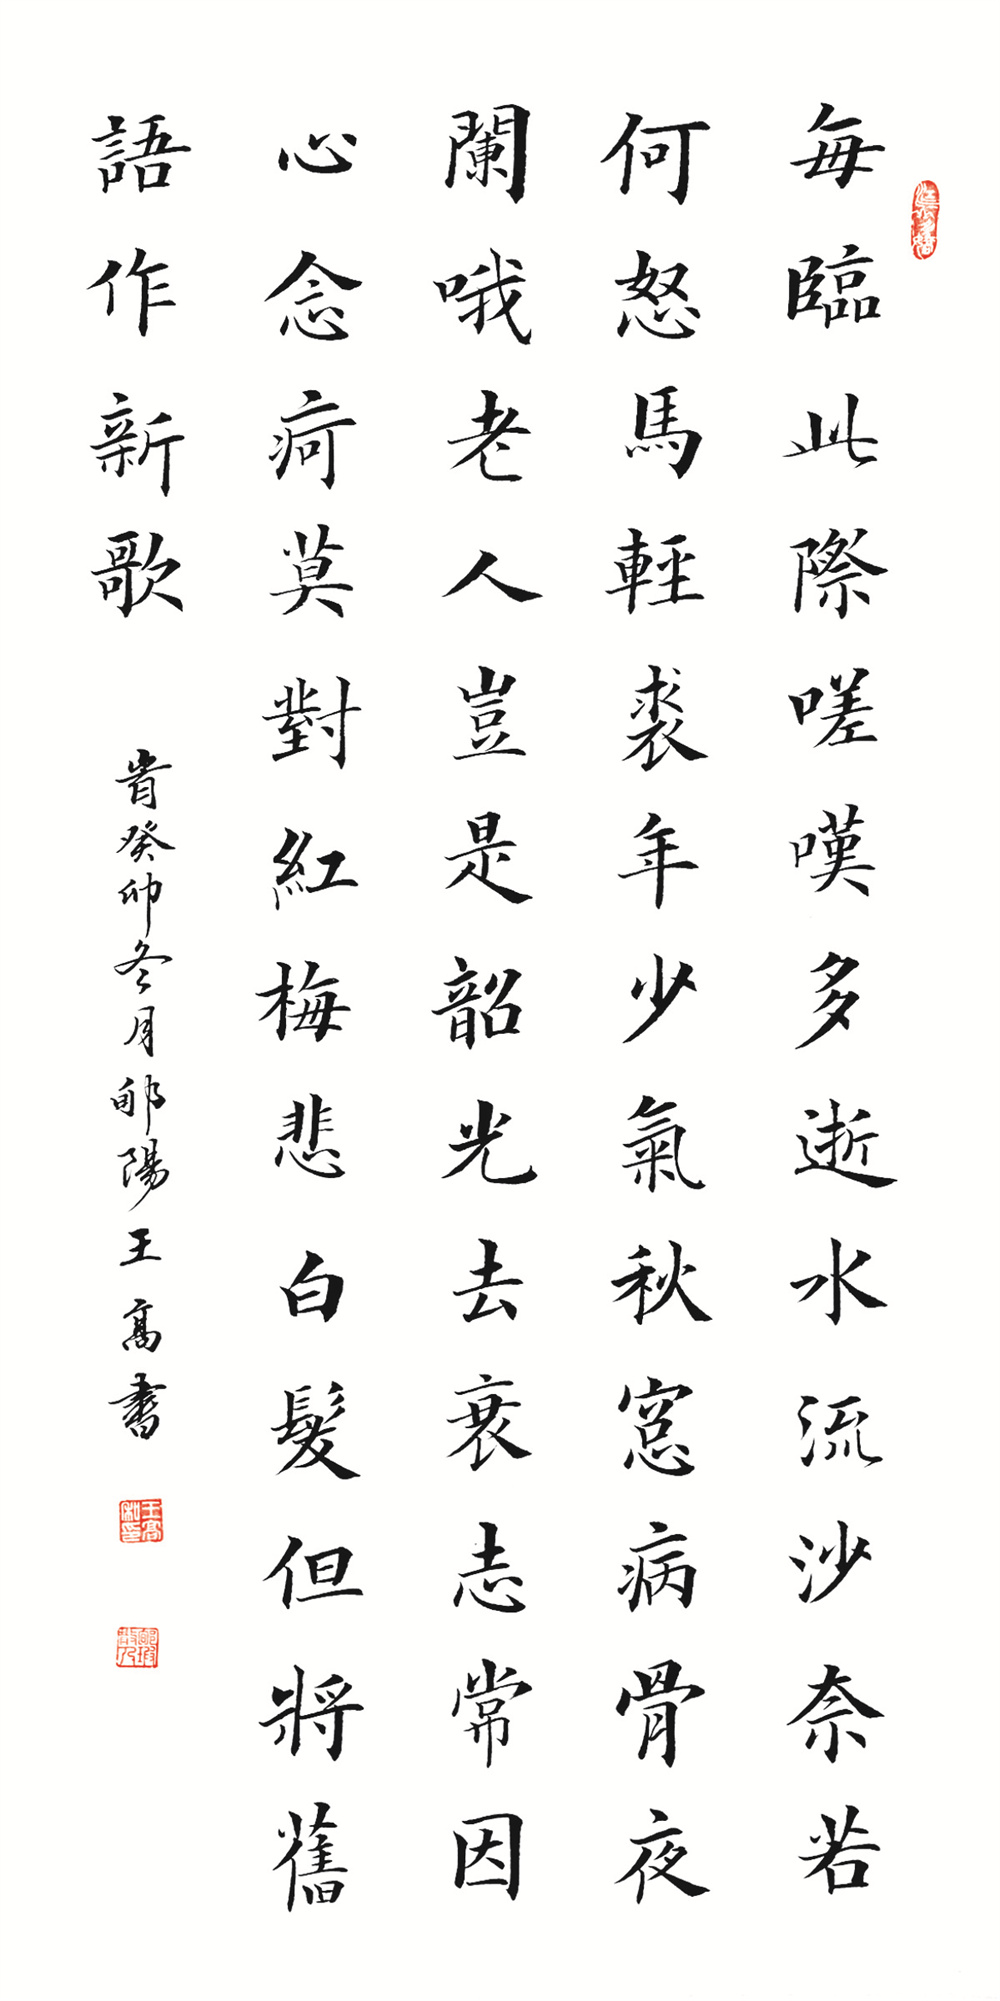 每臨此際嗟嘆多逝水流沙奈若
何怒馬輕裘年少氣秋窓病骨夜
闌哦老人豈是韶光去衰志常因
心念疴莫對紅梅悲白髮但將舊
語作新歌
旹癸卯冬月郇陽王高書
王高私印